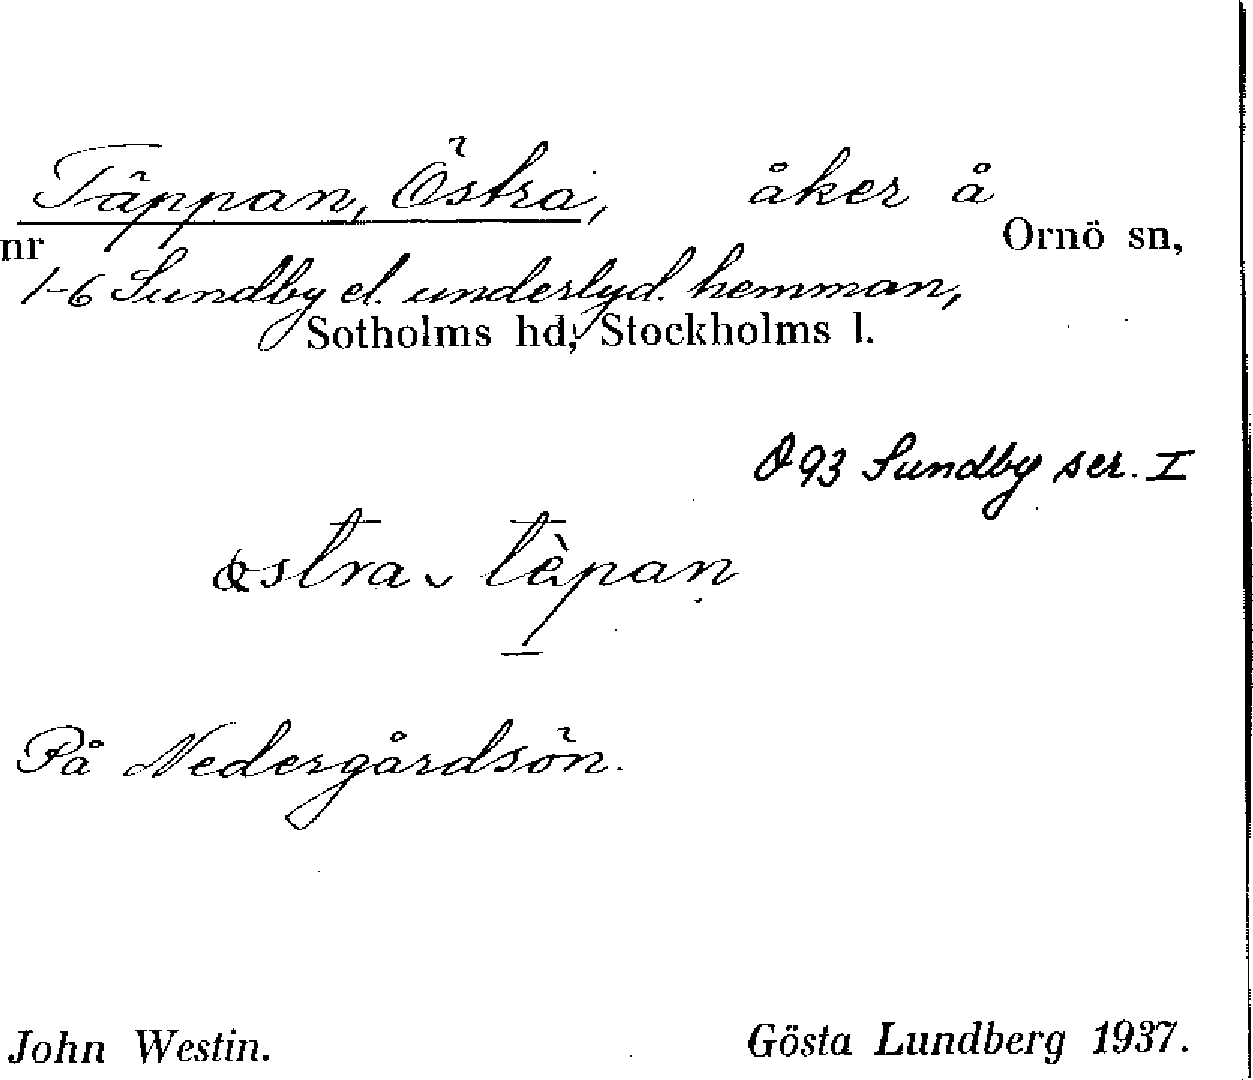 Täppan, Östra, åker å
Ornö sn,
nr
1-6 Sundby el. underlyd. hemman,
Sotholms hd, Stockholms l.
093 Sundby ser. I
östra tèpan
På Nedergårdsön.
John Westin. Gösta Lundberg 1937.